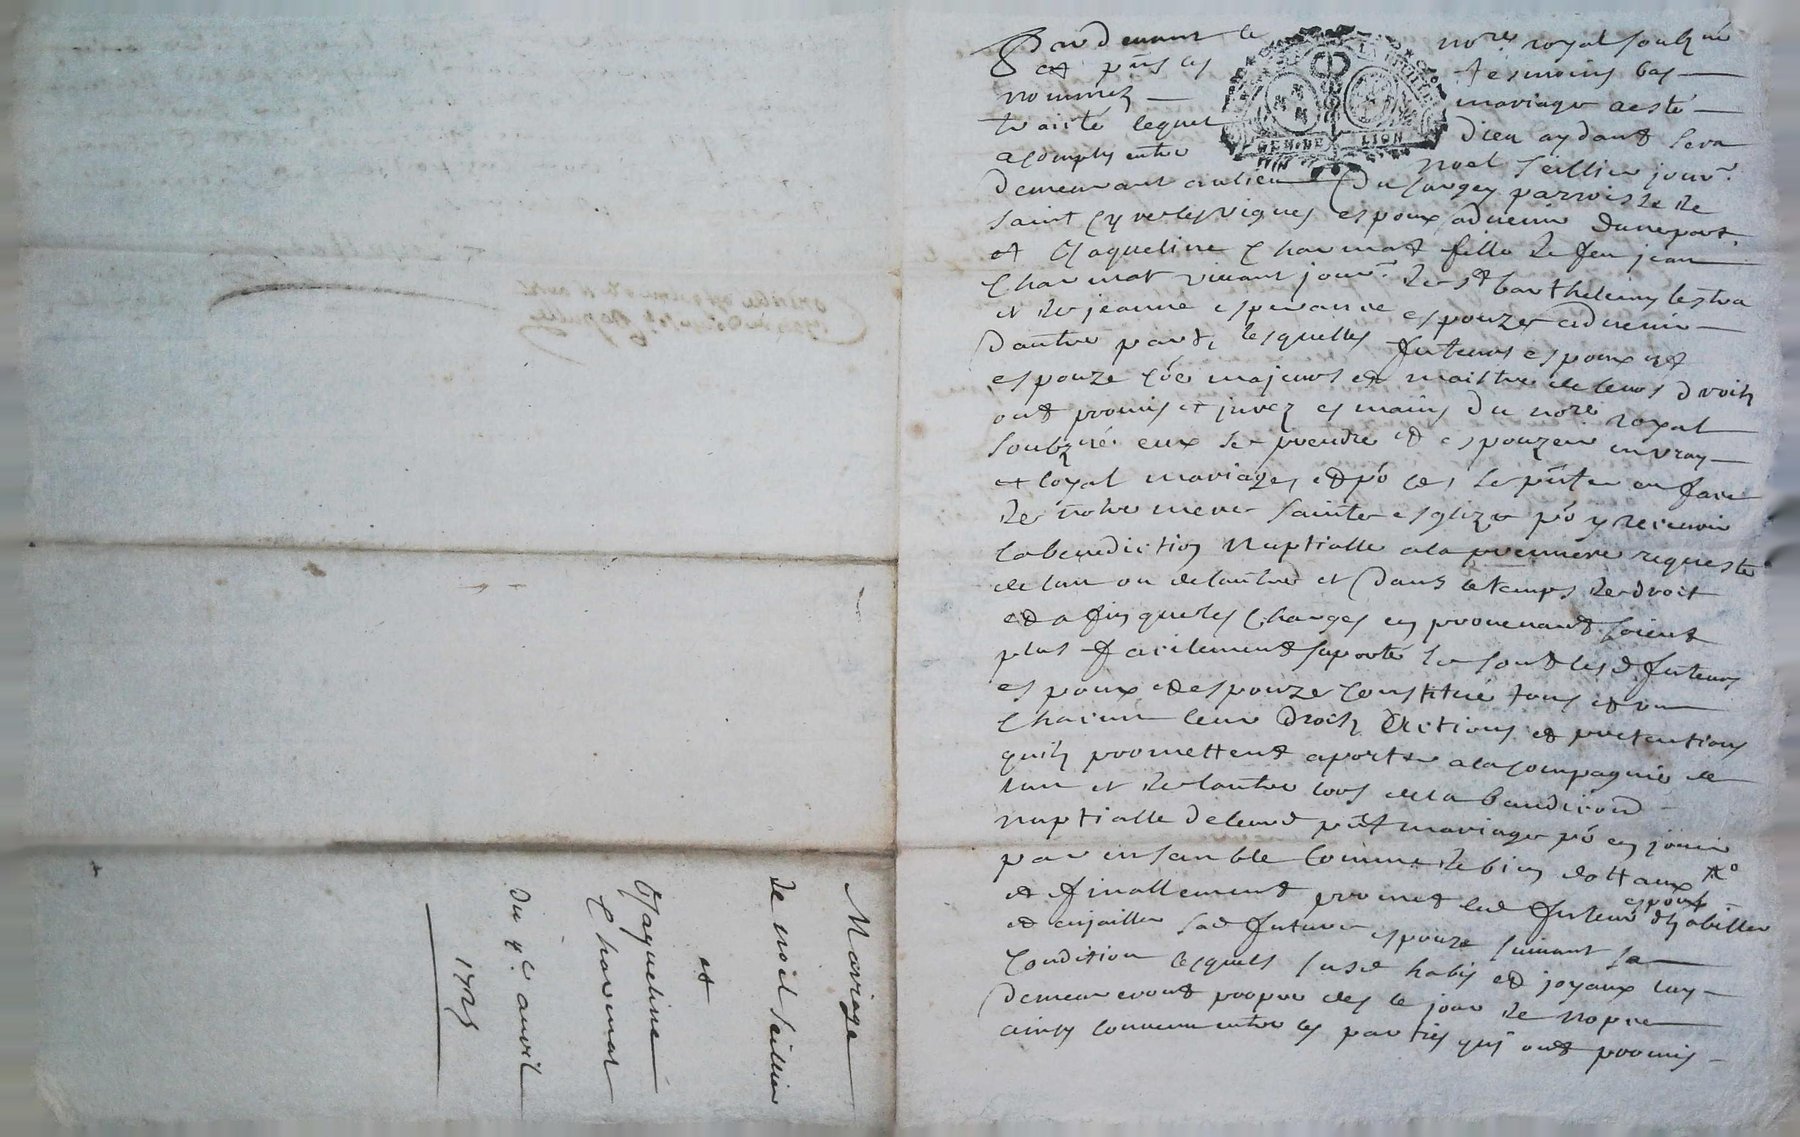 Pardevant le no.re royal soubz.né
et p.nts les tesmoins bas
nommez mariage a esté
traité lequel Dieu aydant sera
acomply entre noel seillier jour.r
demeurant au lieu du parroisse de
saint Cyr les vignes espoux advenir dune part
et Jaqueline Charmat fille de feu jean
Charmat vivant jour.r de S.t barthelemy lestra
et de jeanne esperance espouze advenir
dautre part, lesquelles futeurs espoux et
espouze côe majeurs et maistre de leurs droits
ont promis et jurez es mains du no.re royal
soubzné eux se prendre et espouzer en vray
et loyal mariage, et pō ce, se p.nter en face
de notre mere sainte esglize pō y recevoir
la benediction nuptialle a la premiere requeste
de lun ou de lautre et dans le temps de droit
et afin que les charges en provenant soient
plus facilement suporté se sont lesd futeurs
espoux et espouze constitué tous et un
chacun leur droits actions et pretentions
quils promettent aporter a la compagnie de
lun et de lautre lors de la
nuptialle de leurd p.nt mariage pō en jouir
par ensemble comme de bien dottaux
et finallement promet led futeur espoux dhabiller
et enjoailler sad future espouze suivant sa
condition lesquels susd habis et joyaux luy
demeureront propre des le jour de nopce
ainsy convenu entre les parties qui ont promis
LION
Mariage
de noel seillier
et
Jaqueline
Charmat
du 4.e avril
1725